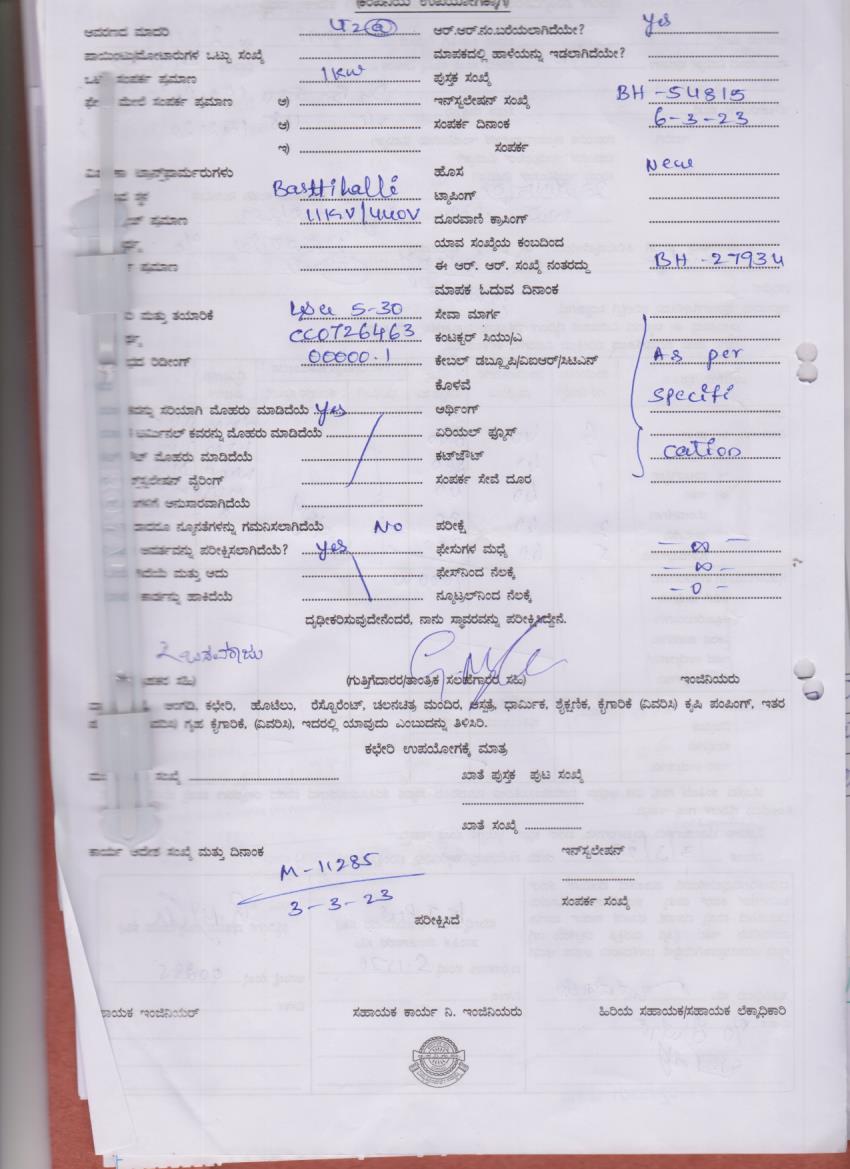 (ಕಂಪನಿಯ ಉಪಯೋಗಕ್ಕಾಗಿ)
ಆವರಣದ ಮಾದರಿ LT2(a) ಆರ್.ಆರ್.ನಂ.ಬರೆಯಲಾಗಿದೆಯೇ? yes
ಪಾಯಿಂಟು/ಮೋಟಾರುಗಳ ಒಟ್ಟು ಸಂಖ್ಯೆ ಮಾಪಕದಲ್ಲಿ ಹಾಳೆಯನ್ನು ಇಡಲಾಗಿದೆಯೇ?
ಸಂಪರ್ಕ ಪ್ರಮಾಣ 1kw ಪುಸ್ತಕ ಸಂಖ್ಯೆ
ಮೇಲೆ ಸಂಪರ್ಕ ಪ್ರಮಾಣ ಅ) ಇನ್‌ಸ್ಟಲೇಷನ್ ಸಂಖ್ಯೆ BH-54815
ಆ) ಸಂಪರ್ಕ ದಿನಾಂಕ 6-3-23
ಇ) ಸಂಪರ್ಕ
ಟ್ರಾನ್ಸ್‌ಫಾರ್ಮರುಗಳು ಹೊಸ New
ಸ್ಥಳ Bashtihalli ಟ್ಯಾಪಿಂಗ್
ಪ್ರಮಾಣ 11KV/440V ದೂರವಾಣಿ ಕ್ರಾಸಿಂಗ್
ಯಾವ ಸಂಖ್ಯೆಯ ಕಂಬದಿಂದ
ಪ್ರಮಾಣ ಈ ಆರ್. ಆರ್. ಸಂಖ್ಯೆ ನಂತರದ್ದು BH-27934
ಮಾಪಕ ಓದುವ ದಿನಾಂಕ
ಮತ್ತು ತಯಾರಿಕೆ 5-30 ಸೇವಾ ಮಾರ್ಗ
CC0726463 ಕಂಟಕ್ಟರ್ ಸಿಯು/ಎ
ರಿಡೀಂಗ್ 00000.1 ಕೇಬಲ್ ಡಬ್ಲ್ಯೂಪಿ/ವಿಐಆರ್/ಸಿಟಿಎಸ್ As per
ಕೊಳವೆ specifi
ಸರಿಯಾಗಿ ಮೊಹರು ಮಾಡಿದೆಯೆ yes ಅರ್ಥಿಂಗ್
ಟರ್ಮಿನಲ್ ಕವರನ್ನು ಮೊಹರು ಮಾಡಿದೆಯೆ ಏರಿಯಲ್ ಫ್ಯೂಸ್
ಮೊಹರು ಮಾಡಿದೆಯೆ ಕಟ್‌ಔಟ್ cation
ವೈರಿಂಗ್ ಸಂಪರ್ಕ ಸೇವೆ ದೂರ
ಅನುಸಾರವಾಗಿದೆಯೆ
ನ್ಯೂನತೆಗಳನ್ನು ಗಮನಿಸಲಾಗಿದೆಯೆ No ಪರೀಕ್ಷೆ
ಪರೀಕ್ಷಿಸಲಾಗಿದೆಯೆ? yes ಫೇಸುಗಳ ಮಧ್ಯೆ - ∞ -
ಮತ್ತು ಅದು ಫೇಸ್‌ನಿಂದ ನೆಲಕ್ಕೆ - ∞ -
ಹಾಕಿದೆಯೆ ನ್ಯೂಟ್ರಲ್‌ನಿಂದ ನೆಲಕ್ಕೆ - 0 -
ದೃಢೀಕರಿಸುವುದೇನೆಂದರೆ, ನಾನು ಸ್ಥಾವರವನ್ನು ಪರೀಕ್ಷಿಸಿದ್ದೇನೆ.
ಸಹಿ) (ಗುತ್ತಿಗೆದಾರರ/ತಾಂತ್ರಿಕ ಸಲಹೆಗಾರರ ಸಹಿ) ಇಂಜಿನಿಯರು
ಅಂಗಡಿ, ಕಛೇರಿ, ಹೊಟೆಲು, ರೆಸ್ಟೋರೆಂಟ್, ಚಲನಚಿತ್ರ ಮಂದಿರ, ಆಸ್ಪತ್ರೆ, ಧಾರ್ಮಿಕ, ಶೈಕ್ಷಣಿಕ, ಕೈಗಾರಿಕೆ (ವಿವರಿಸಿ) ಕೃಷಿ ಪಂಪಿಂಗ್, ಇತರ
ಗೃಹ ಕೈಗಾರಿಕೆ, (ವಿವರಿಸಿ), ಇದರಲ್ಲಿ ಯಾವುದು ಎಂಬುದನ್ನು ತಿಳಿಸಿರಿ.
ಕಛೇರಿ ಉಪಯೋಗಕ್ಕೆ ಮಾತ್ರ
ಸಂಖ್ಯೆ ಖಾತೆ ಪುಸ್ತಕ ಪುಟ ಸಂಖ್ಯೆ
ಖಾತೆ ಸಂಖ್ಯೆ
ಕಾರ್ಯ ಆದೇಶ ಸಂಖ್ಯೆ ಮತ್ತು ದಿನಾಂಕ ಇನ್‌ಸ್ಟಲೇಷನ್
M-11285
3-3-23 ಸಂಪರ್ಕ ಸಂಖ್ಯೆ
ಪರೀಕ್ಷಿಸಿದೆ
ಸಹಾಯಕ ಇಂಜಿನಿಯರ್ ಸಹಾಯಕ ಕಾರ್ಯ ನಿ. ಇಂಜಿನಿಯರು ಹಿರಿಯ ಸಹಾಯಕ/ಸಹಾಯಕ ಲೆಕ್ಕಾಧಿಕಾರಿ